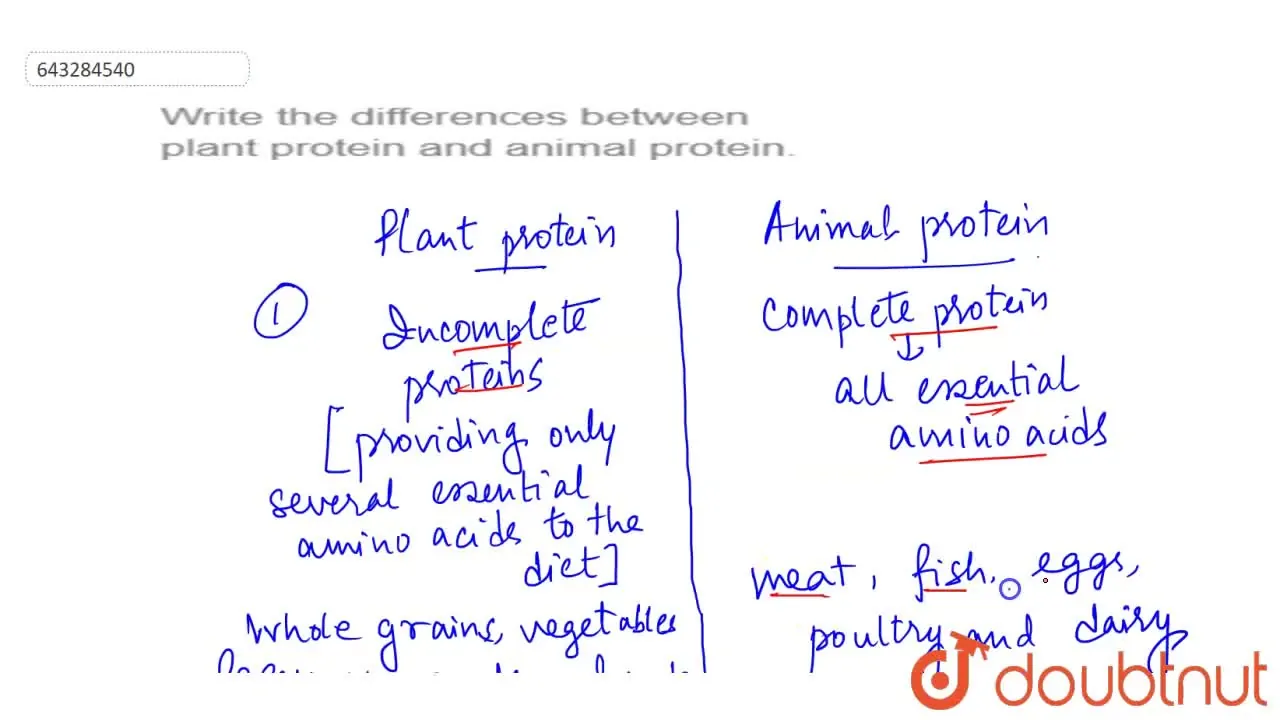 643284540
Write the differences between
plant protein and animal protein.
Plant protein
Animal protein
1
Incomplete
proteins
[providing only
several essential
amino acids to the
diet]
Whole grains, vegetables
Complete protein
all essential
amino acids
meat, fish, eggs,
poultry and dairy
doubtnut